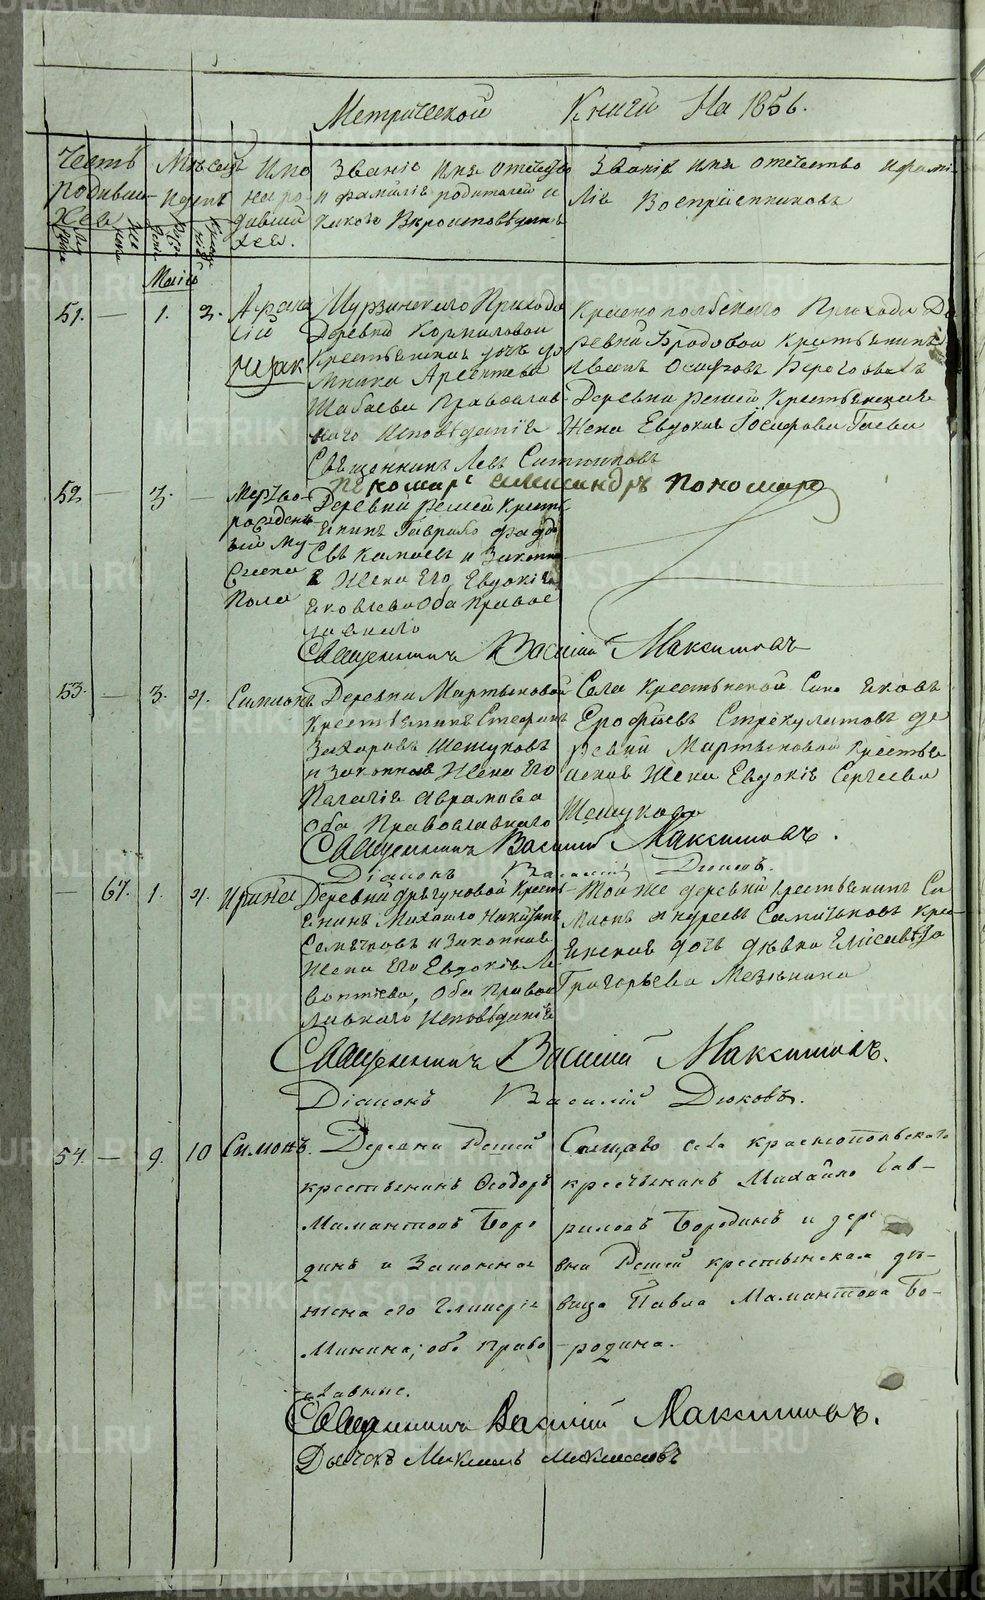 Метрической Книги На 1856.
Счетъ родивших- ся
Мѣсяцъ и день
Имя народившихся.
Званіе имя отчество и фамилія родителей и какого Вѣроисповѣданія
Званіе имя отчество и фамилія Воспріемниковъ
Маій
51. — 1. 2.
Мурзинского Прихода
Деревни Корниловой
Крестьянская дочь
Арсентьева
Православ-
наго исповѣданія
Краснопольского Прихода Де-
ревни Бродовой Крестьянинъ
Иванъ Осиповъ
Деревни Решей Крестьянская
Жена Евдокія Іосифова Гаева
Священникъ Левъ Ситниковъ
Пономарь Александръ Пономаревъ
52 — 3. —
Мертво-
рожденн-
ый му-
жеска
Пола
Деревни Решей Кресть-
янинъ Гаврило
и Законна-
я Жена Его Евдокія
Яковлева Оба Правос-
лавнаго
Священникъ Василій Максимовъ
53. — 3. 4.
Симеонъ
Деревни Мартьяновой
Крестьянинъ Стефанъ
Захаровъ Шешуковъ
и Законная Жена Его
Пелагія Аврамова
Оба Православнаго
Села Крестьянской Сынъ Яковъ
Ерофѣевъ Стрекулятовъ де-
ревни Мартьяновой крестья-
нская Жена Евдокія Сергѣева
Шешукова
Священникъ Василій Максимовъ.
Діаконъ Василій Дюковъ.
— 67. 1. 4.
Ирина
Деревни Дрягуновой Кресть-
янинъ Михайло Никитинъ
Семячковъ и Законная
Жена Его Евдокія Ле-
вонтіева, Оба Правос-
лавнаго исповѣданія
Той же деревни крестьянинъ Си-
монъ Андреевъ Семячковъ Крес-
янская дочь дѣвка Елисавета
Григорьева Мезенина
Священникъ Василій Максимовъ.
Діаконъ Василій Дюковъ.
54. — 9. 10
Симонъ.
Деревни Решей
крестьянинъ Ѳеодоръ
Мамантовъ Боро-
динъ и Законная
жена его Гликерія
Минина; оба право-
славные.
Сего села краснопольского
крестьянинъ Михайло Гав-
риловъ Бородинъ и дере-
вни Решей крестьянская дѣ-
вица Павла Мамантова Бо-
родина.
Священникъ Василій Максимовъ.
Дьячокъ Михаилъ